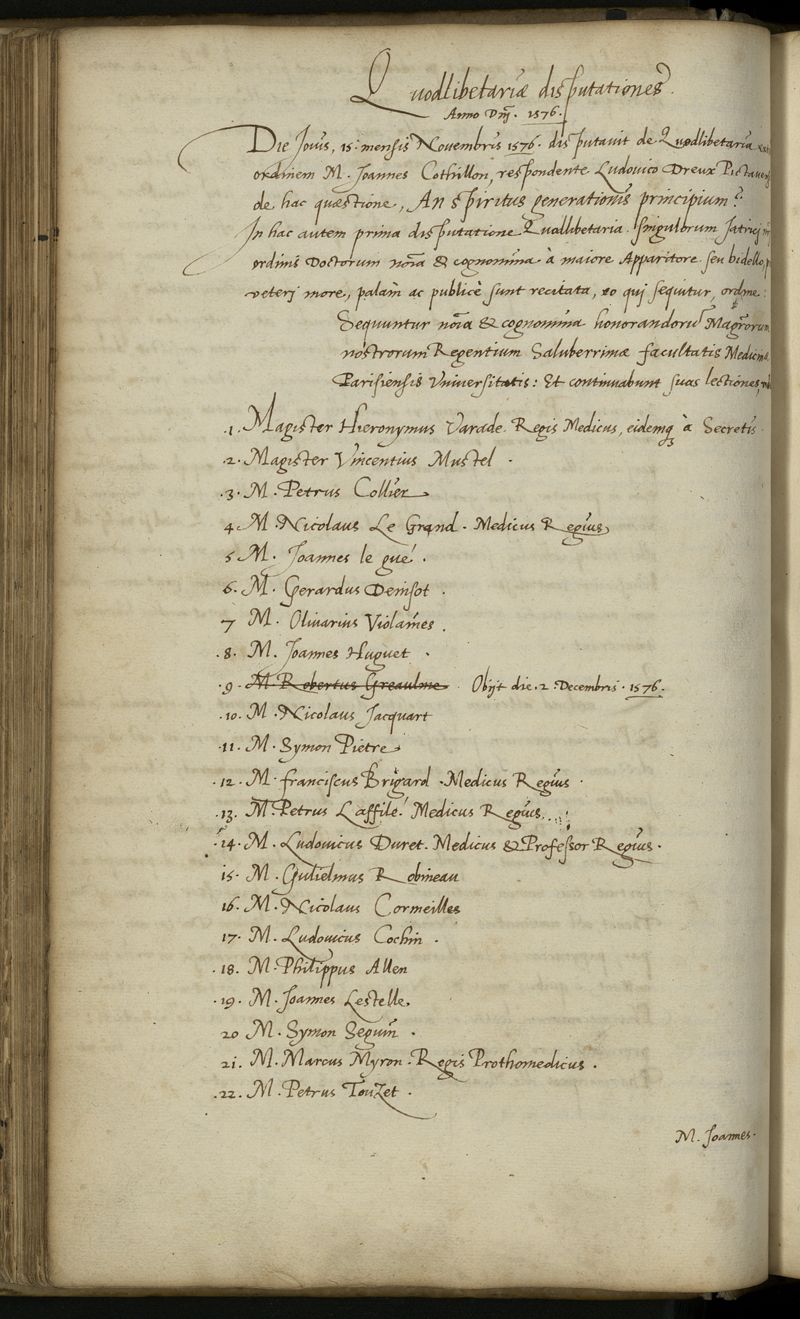 Quodlibetariæ disputationes.
Anno Dnj. 1576.
Die Jouis, 15. mensis Nouembris 1576. disputauit de Quodlibetaria
ordinem M. Joannes Cothillon, respondente Ludouico Dreux
de hac quæstione, An spiritus generationis principium?
In hac autem prima disputatione Quodlibetaria. singulorum
ordinis Doctorum noīa & cognomina à maiore Apparitore seu bidello,
veterj more, palàm ac publicè sunt recitata, eo qui sequitur, ordine:
Sequuntur noīa & cognomina honorandorū Magrorum
nostrorum Regentium Saluberrimæ facultatis Medicinæ
Parisiensis Vniuersitatis: Et continuabunt suas lectiones,
.1. Magister Hieronymus Varade. Regis Medicus, eidemq3 à Secretis.
.2. Magister Vincentius Mustel .
.3. M. Petrus Collier
4. M. Nicolaus Le Grand. Medicus Regius
5 M. Joannes le gué .
.6. M. Gerardus Denisot .
7 M. Oliuarius Violaines .
.8. M. Joannes Huguet .
.9. M. Robertus Greaulme . Obijt die .2. Decembris . 1576.
.10. M. Nicolaus Jacquart
.11. M. Symon Pietre
.12. M. franciscus Brigard . Medicus Regius .
.13. M. Petrus Laffilé. Medicus Regius
.14. M. Ludouicus Duret. Medicus & Professor Regius .
15. M. Gulielmus Robineau
16. M. Nicolaus Cormeilles
17. M. Ludouicus Cochin .
.18. M. Philippus Allen
.19. M. Joannes Lestelle
20 M. Symon Seguin .
21. M. Marcus Myron. Regis Prothomedicus .
.22. M. Petrus Touzet .
M. Joannes.